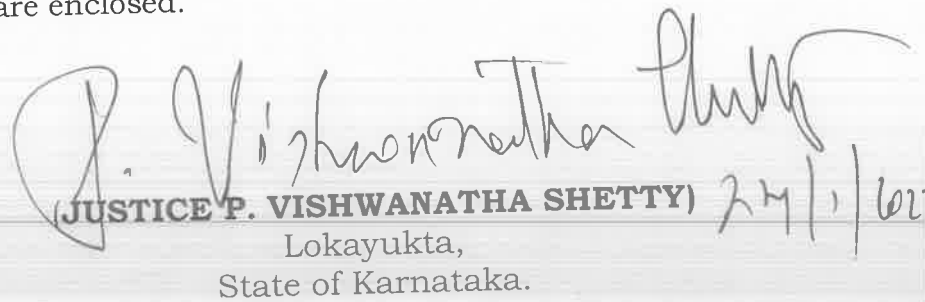 are enclosed.
P. Vishwanatha Shetty
(JUSTICE P. VISHWANATHA SHETTY)
Lokayukta,
State of Karnataka.